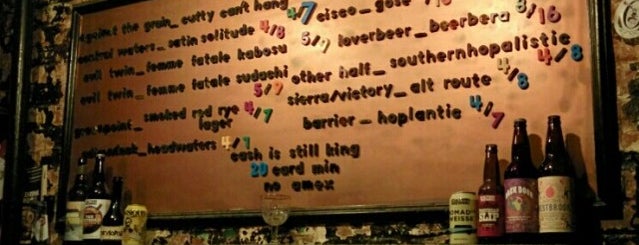 against the grain_ cutty can't hang 4/7
central waters_ satin solitude 4/8
evil twin_ femme fatale kabosu 5/9
evil twin_ femme fatale sudachi 5/9
greenpoint_ smoked red rye lager 4/7
headwaters 4/7
cisco_ gose /16
loverbeer_ beerbera 8/16
other half_ southernhopalistic 4/8
sierra/victory_ alt route 4/8
barrier_ hoplantic 4/7
cash is still king
20 card min
no amex
NOMADER WEISSE
JACK D'OR
WESTBROOK